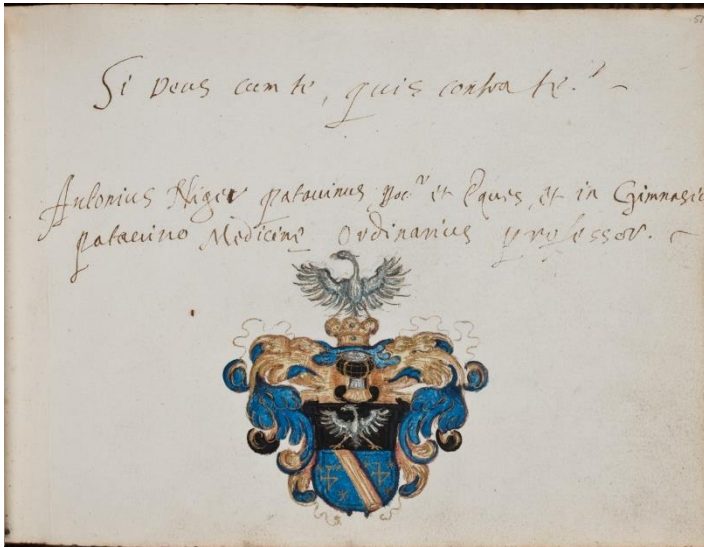 51
Si Deus cum te, quis contra te?
Antonius Niger patauinus et Eques, et in Gimnasio
patauino Medicinę Ordinarius professor.